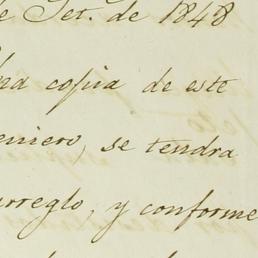 de Set. de 1848
una copia de este
eniero, se tendra
arreglo, y conforme